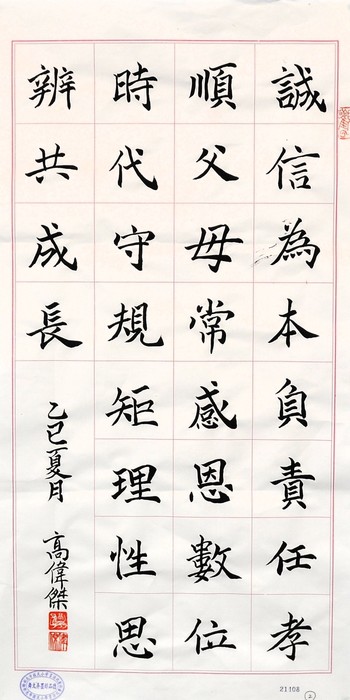 誠信為本負責任孝
順父母常感恩數位
時代守規矩理性思
辨共成長
乙巳夏月 高偉傑
21108
2